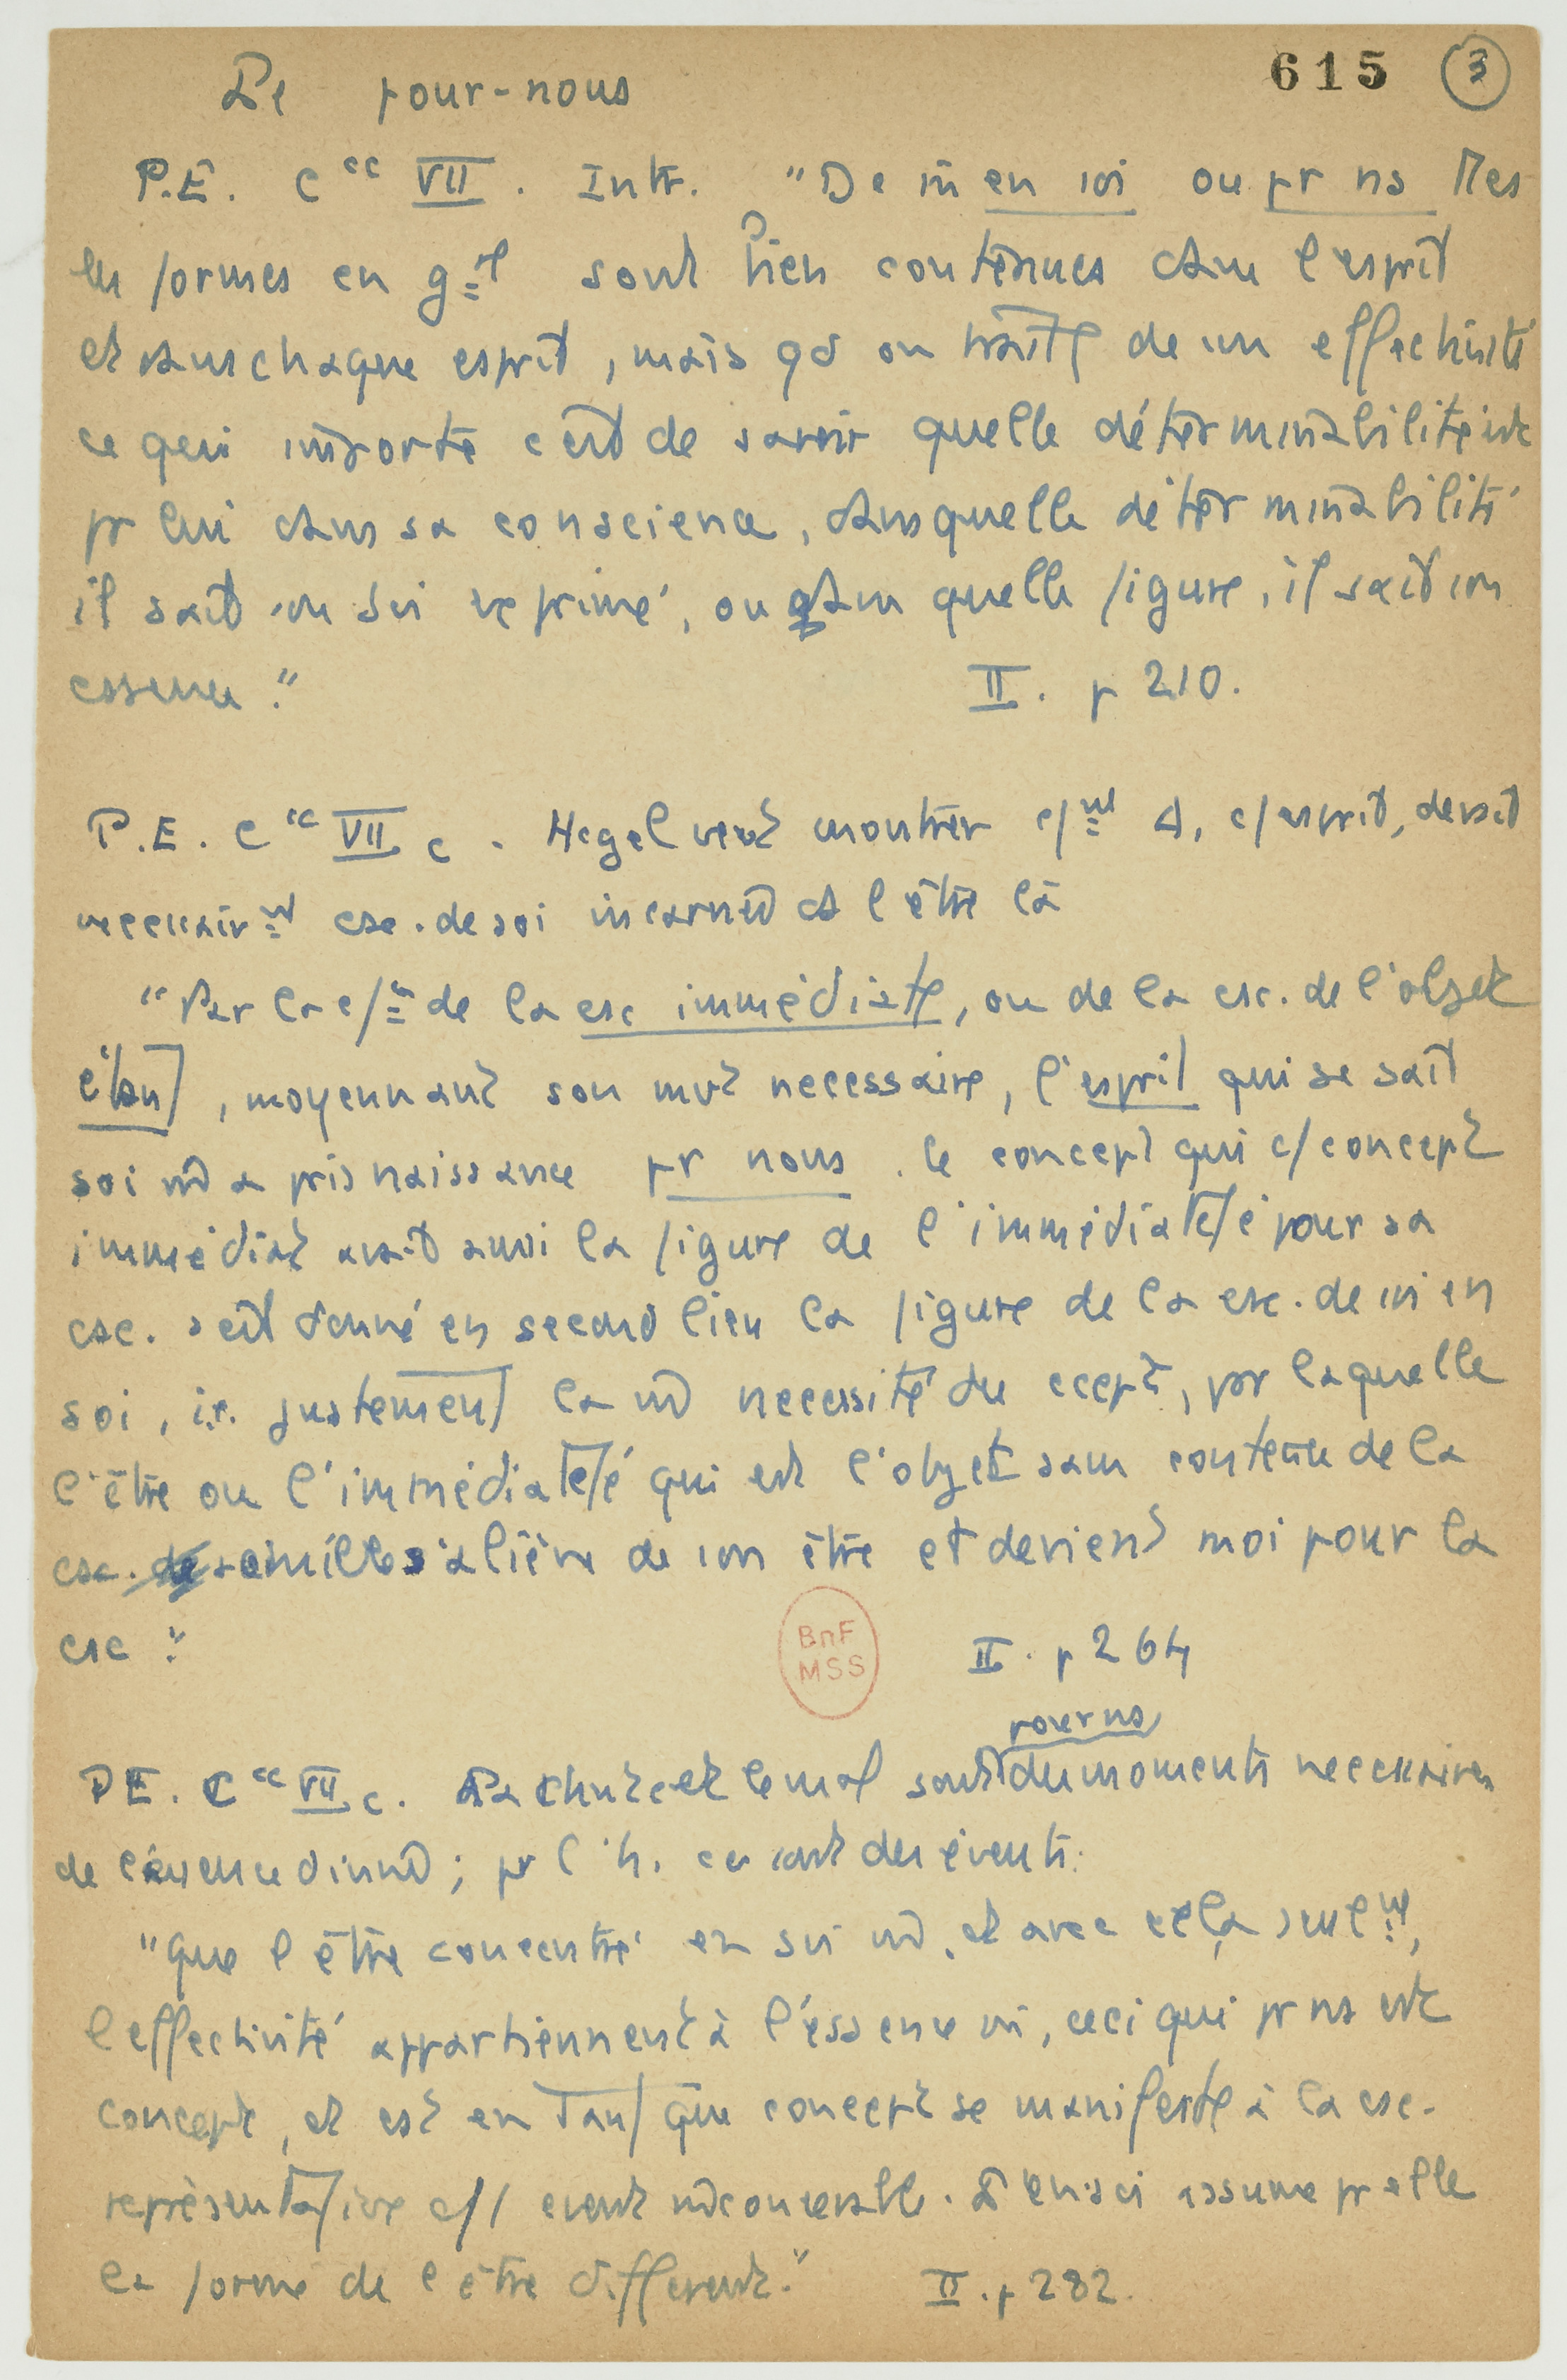 Le pour-nous
615 3
P.E. C cc VII. Intr. "De m̂ en soi ou pr ns ttes
les formes en g=al sont bien contenues dans l'esprit
et dans chaque esprit, mais qd on traite de son effectivité
ce qui importe c'est de savoir quelle déterminabilité est
pr lui dans sa conscience, dans quelle déterminabilité
il sait son soi exprimé, ou dans quelle figure, il sait son
essence."
II. p 210.
P.E. C cc VII c. Hegel veut montrer c/mt D, c/esprit, devait
necessairmt csc. de soi ds l'être là
"Par la c/ de la csc immédiate, ou de la csc. de l'objet
étant, moyennant son mvt necessaire, l'esprit qui se sait
soi m̂ a pris naissance pr nous. le concept qui c/concept
immédiat avait aussi la figure de l'immédiateté pour sa
csc. s'est donné en second lieu la figure de la csc. de soi en
soi, i.e. justement la m̂ necessité du ccept, par laquelle
l'être ou l'immédiateté qui est l'objet sans contenu de la
csc. sensible s'aliène de son être et devient moi pour la
csc."
BnF
MSS
II. p 264
pour ns
P.E. C cc VII c. La chute et le mal sont des moments necessaires
de l'essence divine; pr l'h. ce sont des évents.
"Que l'être concentré en soi m̂, et avec cela seulmt,
l'effectivité appartiennent à l'éssence m̂, ceci qui pr ns est
concept, et est en tant que concept se manifeste à la csc.
représentative c// event inconcevable. L'en-soi assume pr elle
la forme de l'être différent."
II. p 282.